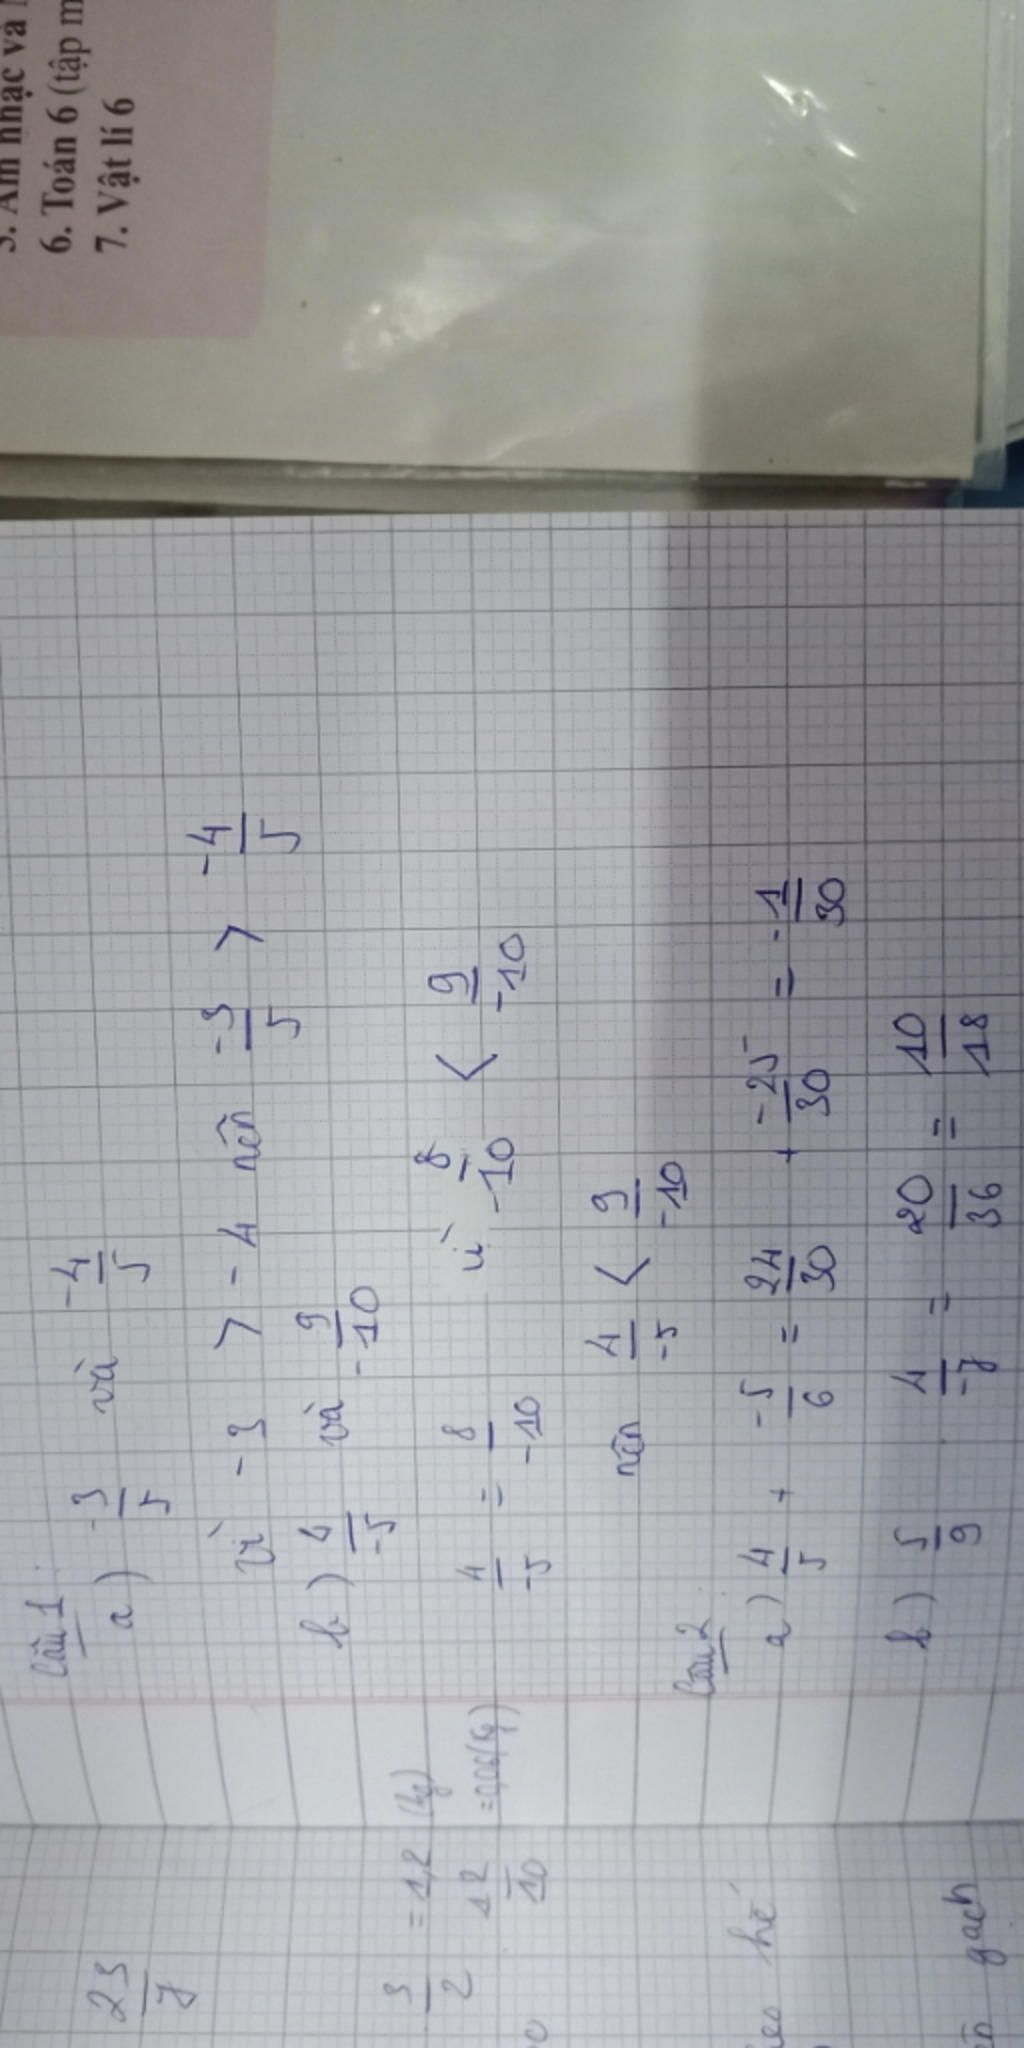 6. Toán 6 (tập
7. Vật lí 6
Câu 1
a) -3/5 và -4/5
vì -3 > -4 nên -3/5 > -4/5
b) 4/-5 và 9/-10
4/-5 = 8/-10 vì 8/-10 < 9/-10
nên 4/-5 < 9/-10
Câu 2
a) 4/5 + -5/6 = 24/30 + -25/30 = -1/30
b) 5/9 . 4/-7 = 20/36 = 10/18
23/7
3/2 = 1,2 (kg)
12/10 = 0,06 (kg)
hè
gạch